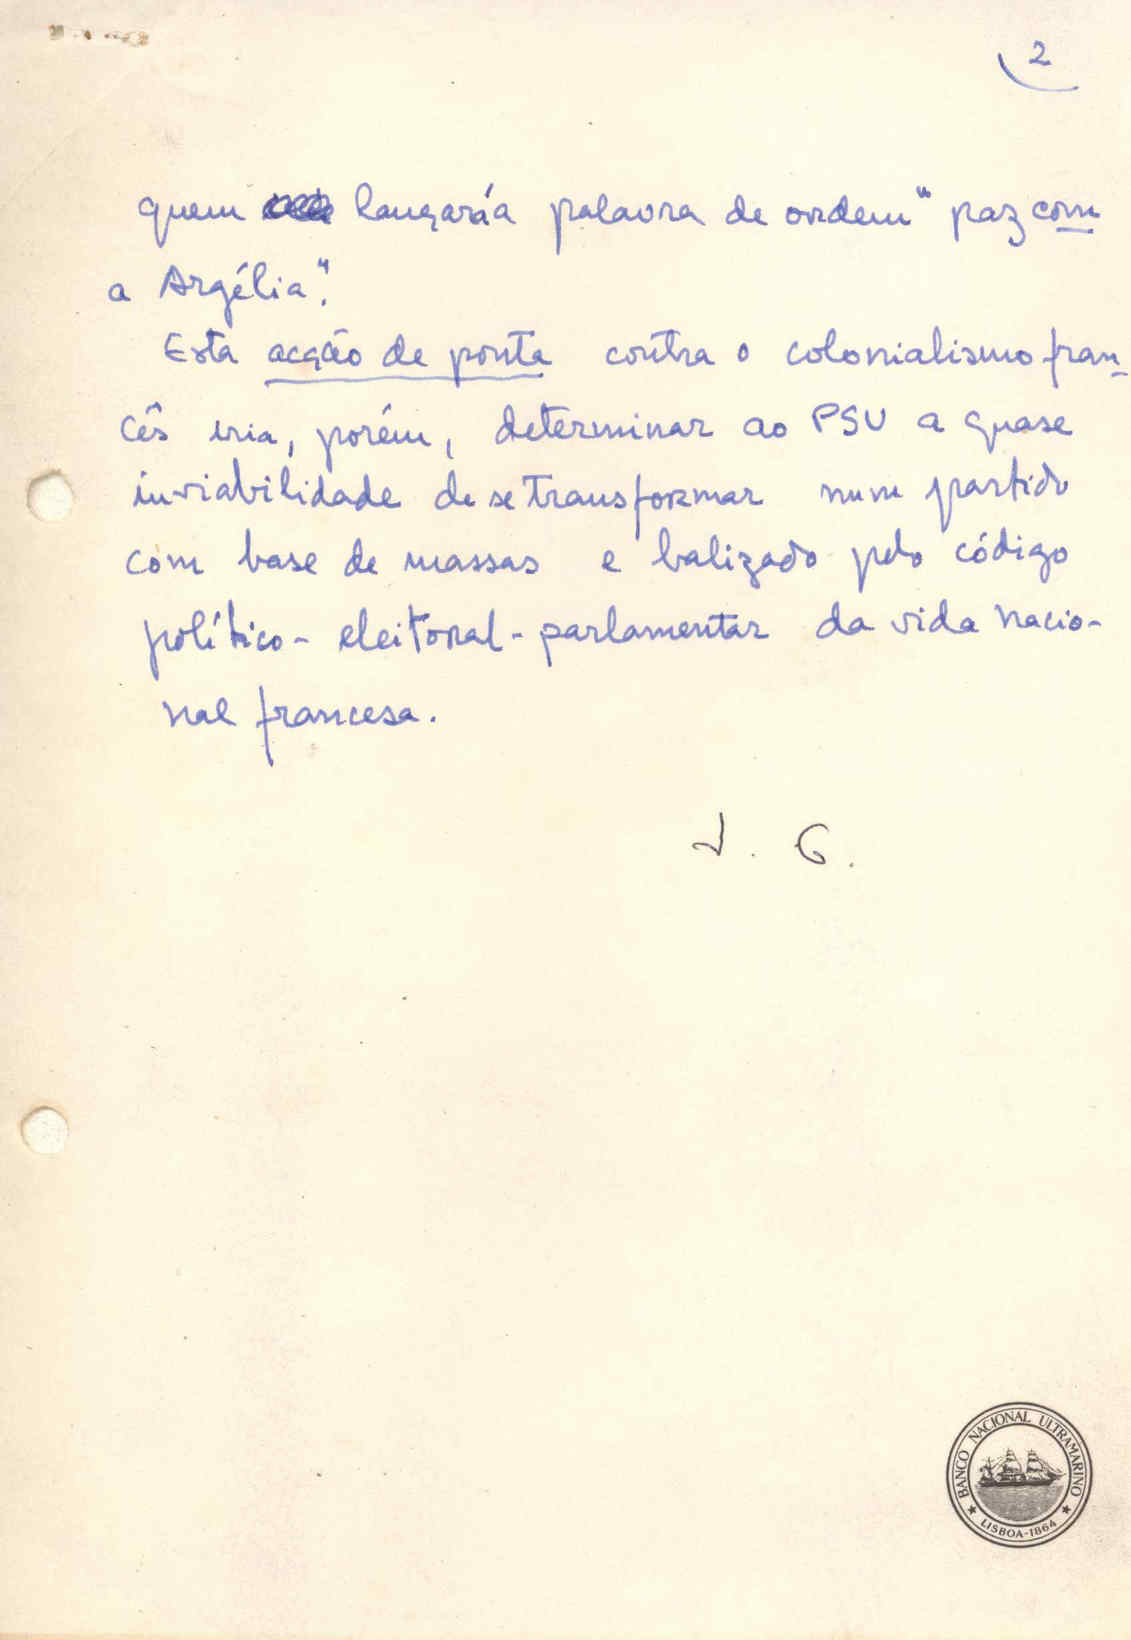 2
quem lançará a palavra de ordem "paz com
a Argélia".
Esta acção de ponta contra o colonialismo fran-
cês iria, porém, determinar ao PSU a quase
inviabilidade de se transformar num partido
com base de massas e balizado pelo código
político-eleitoral-parlamentar da vida nacio-
nal francesa.
J. G.
BANCO NACIONAL ULTRAMARINO
★ LISBOA-1864 ★